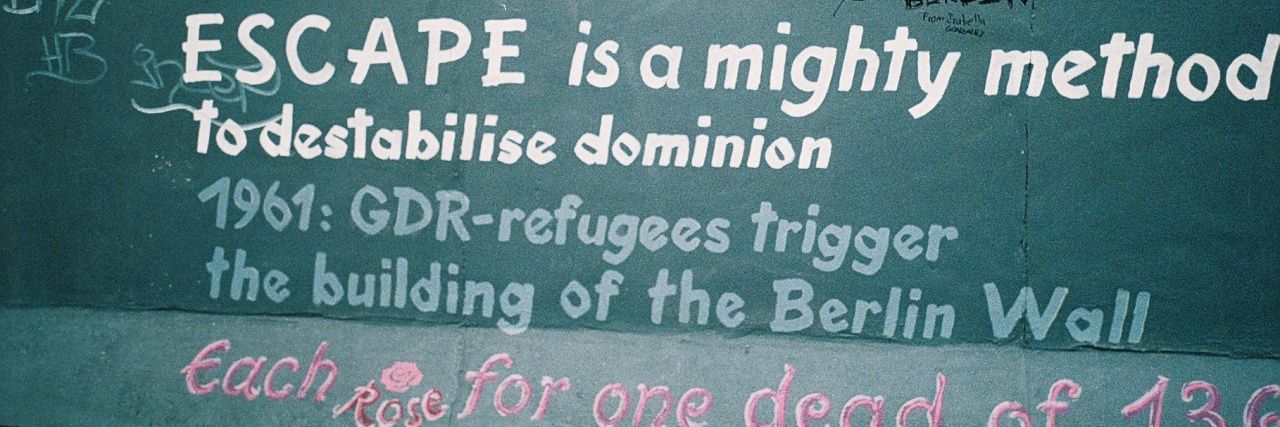 ESCAPE is a mighty method
to destabilise dominion
1961: GDR-refugees trigger
the building of the Berlin Wall
Each Rose for one dead of 136
From Isabella
GONZALEZ
HB